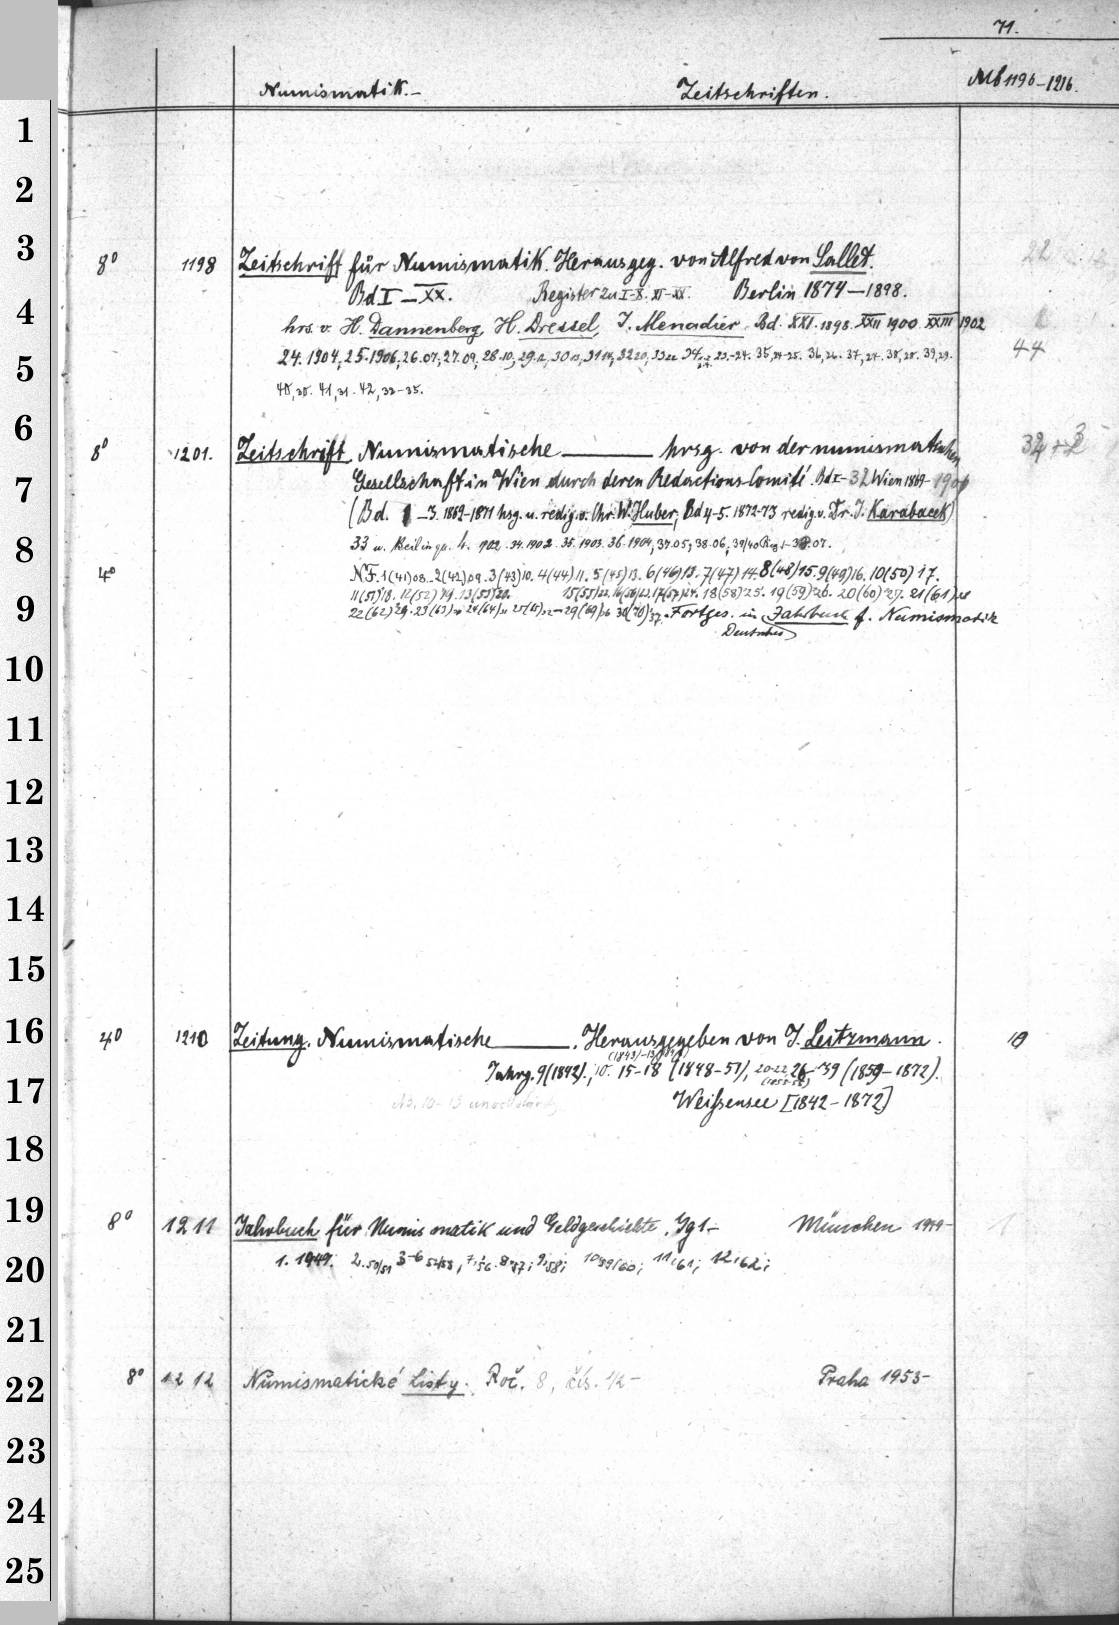 71.
Numismatik.- Zeitschriften. Mb 1196-1216.
1
2
3 8° 1198 Zeitschrift für Numismatik. Herausgeg. von Alfred von Sallet. 22
Bd I-XX. Register zu I-X. XI-XX. Berlin 1874-1898.
4 hrs. v. H. Dannenberg, H. Dressel, J. Menadier. Bd. XXI. 1898. XXII 1900 XXIII 1902
24. 1904, 25. 1906, 26. 07, 27. 09, 28. 10, 29. 12, 30 13, 31 14, 32 20, 33 22 34, 23.-24. 35, 24-25. 36, 26. 37, 27. 38, 28. 39, 29. 44
5 40, 30. 41, 31. 42, 32-35.
6 8° 1201. Zeitschrift, Numismatische ——— hrsg. von der numismatischen
7 Gesellschaft in Wien durch deren Redactions-Comité. Bd I-32 Wien 1869-
(Bd. 1-3. 1869-1871 hsg. u. redig. v. Chr. W. Huber, Bd 4-5. 1872-73 redig. v. Dr. J. Karabacek)
8 33 u. 1902. 34. 1902. 35. 1903. 36. 1904, 37. 05, 38. 06, 39/40 07.
4° N.F. 1(41)08. 2(42)09. 3(43)10. 4(44)11. 5(45)13. 6(46)13. 7(47)14. 8(48)15. 9(49)16. 10(50)17.
9 11(51)18. 12(52)19. 13(53)20. 15(55)22. 16(56)23. 17(57)24. 18(58)25. 19(59)26. 20(60)27. 21(61)28
22(62)29. 23(63)30 24(64)31 25(65)32-29(69)36 30(70)37. Fortges. in Jahrbuch f. Numismatik
Deutsches
10
11
12
13
14
15
16 4° 1210 Zeitung. Numismatische ———. Herausgegeben von J. Leitzmann. 19
17 Jahrg. 9(1842)., 10. 15-18 (1848-51), 20-22, 26-39 (1859-1872).
Weißensee [1842-1872]
18
19 8° 1211 Jahrbuch für Numismatik und Geldgeschichte. Jg 1- München 1949- 1
20 1. 1949. 2. 50/51 3-6 52/55, 7,'56. 8'57; 9,'58; 10 59/60; 11,'61; 12,'62;
21
22 8° 1212 Numismatické Listy. Roč. 8, čís. 1/2- Praha 1953-
23
24
25